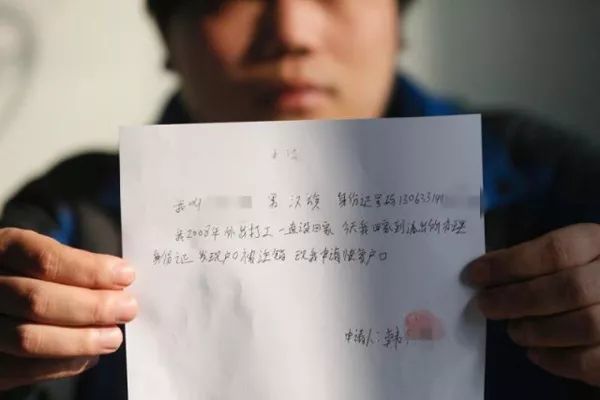 申请
我叫 男 汉族 身份证号码13063319
我2008年外出打工一直没回家 今天我回家到派出所办理
身份证 发现户口被注销 现我申请恢复户口
申请人:韩